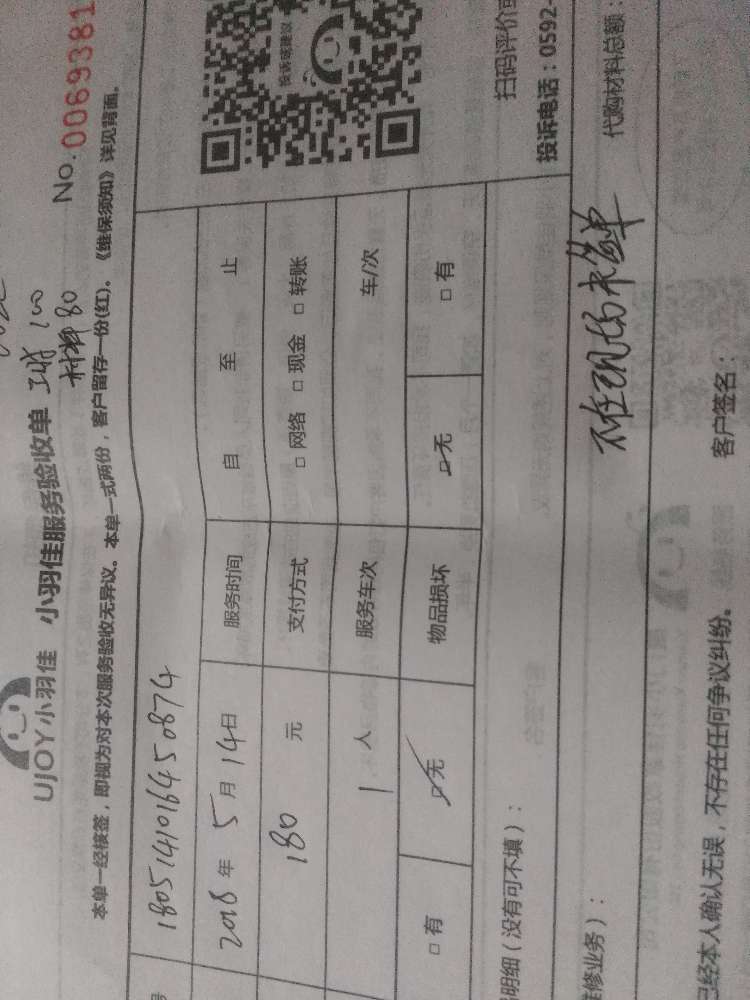 UJOY小羽佳 小羽佳服务验收单
工时 100
材料 80
No.0069381
本单一经核签，即视为对本次服务验收无异议。本单一式两份，客户留存一份(红)。《维保须知》详见背面。
号 1805141016450874
2018年5月14日 服务时间 自 至 止
180 元 支付方式 □ 网络 □ 现金 □ 转账
1 人 服务车次 车/次
□ 有 □ 无 物品损坏 □ 无 □ 有
投诉或建议
扫码评价或
投诉电话：0592-
明细（没有可不填）：
修业务）：
不在现场未签单
代购材料总额：
已经本人确认无误，不存在任何争议纠纷。 客户签名：